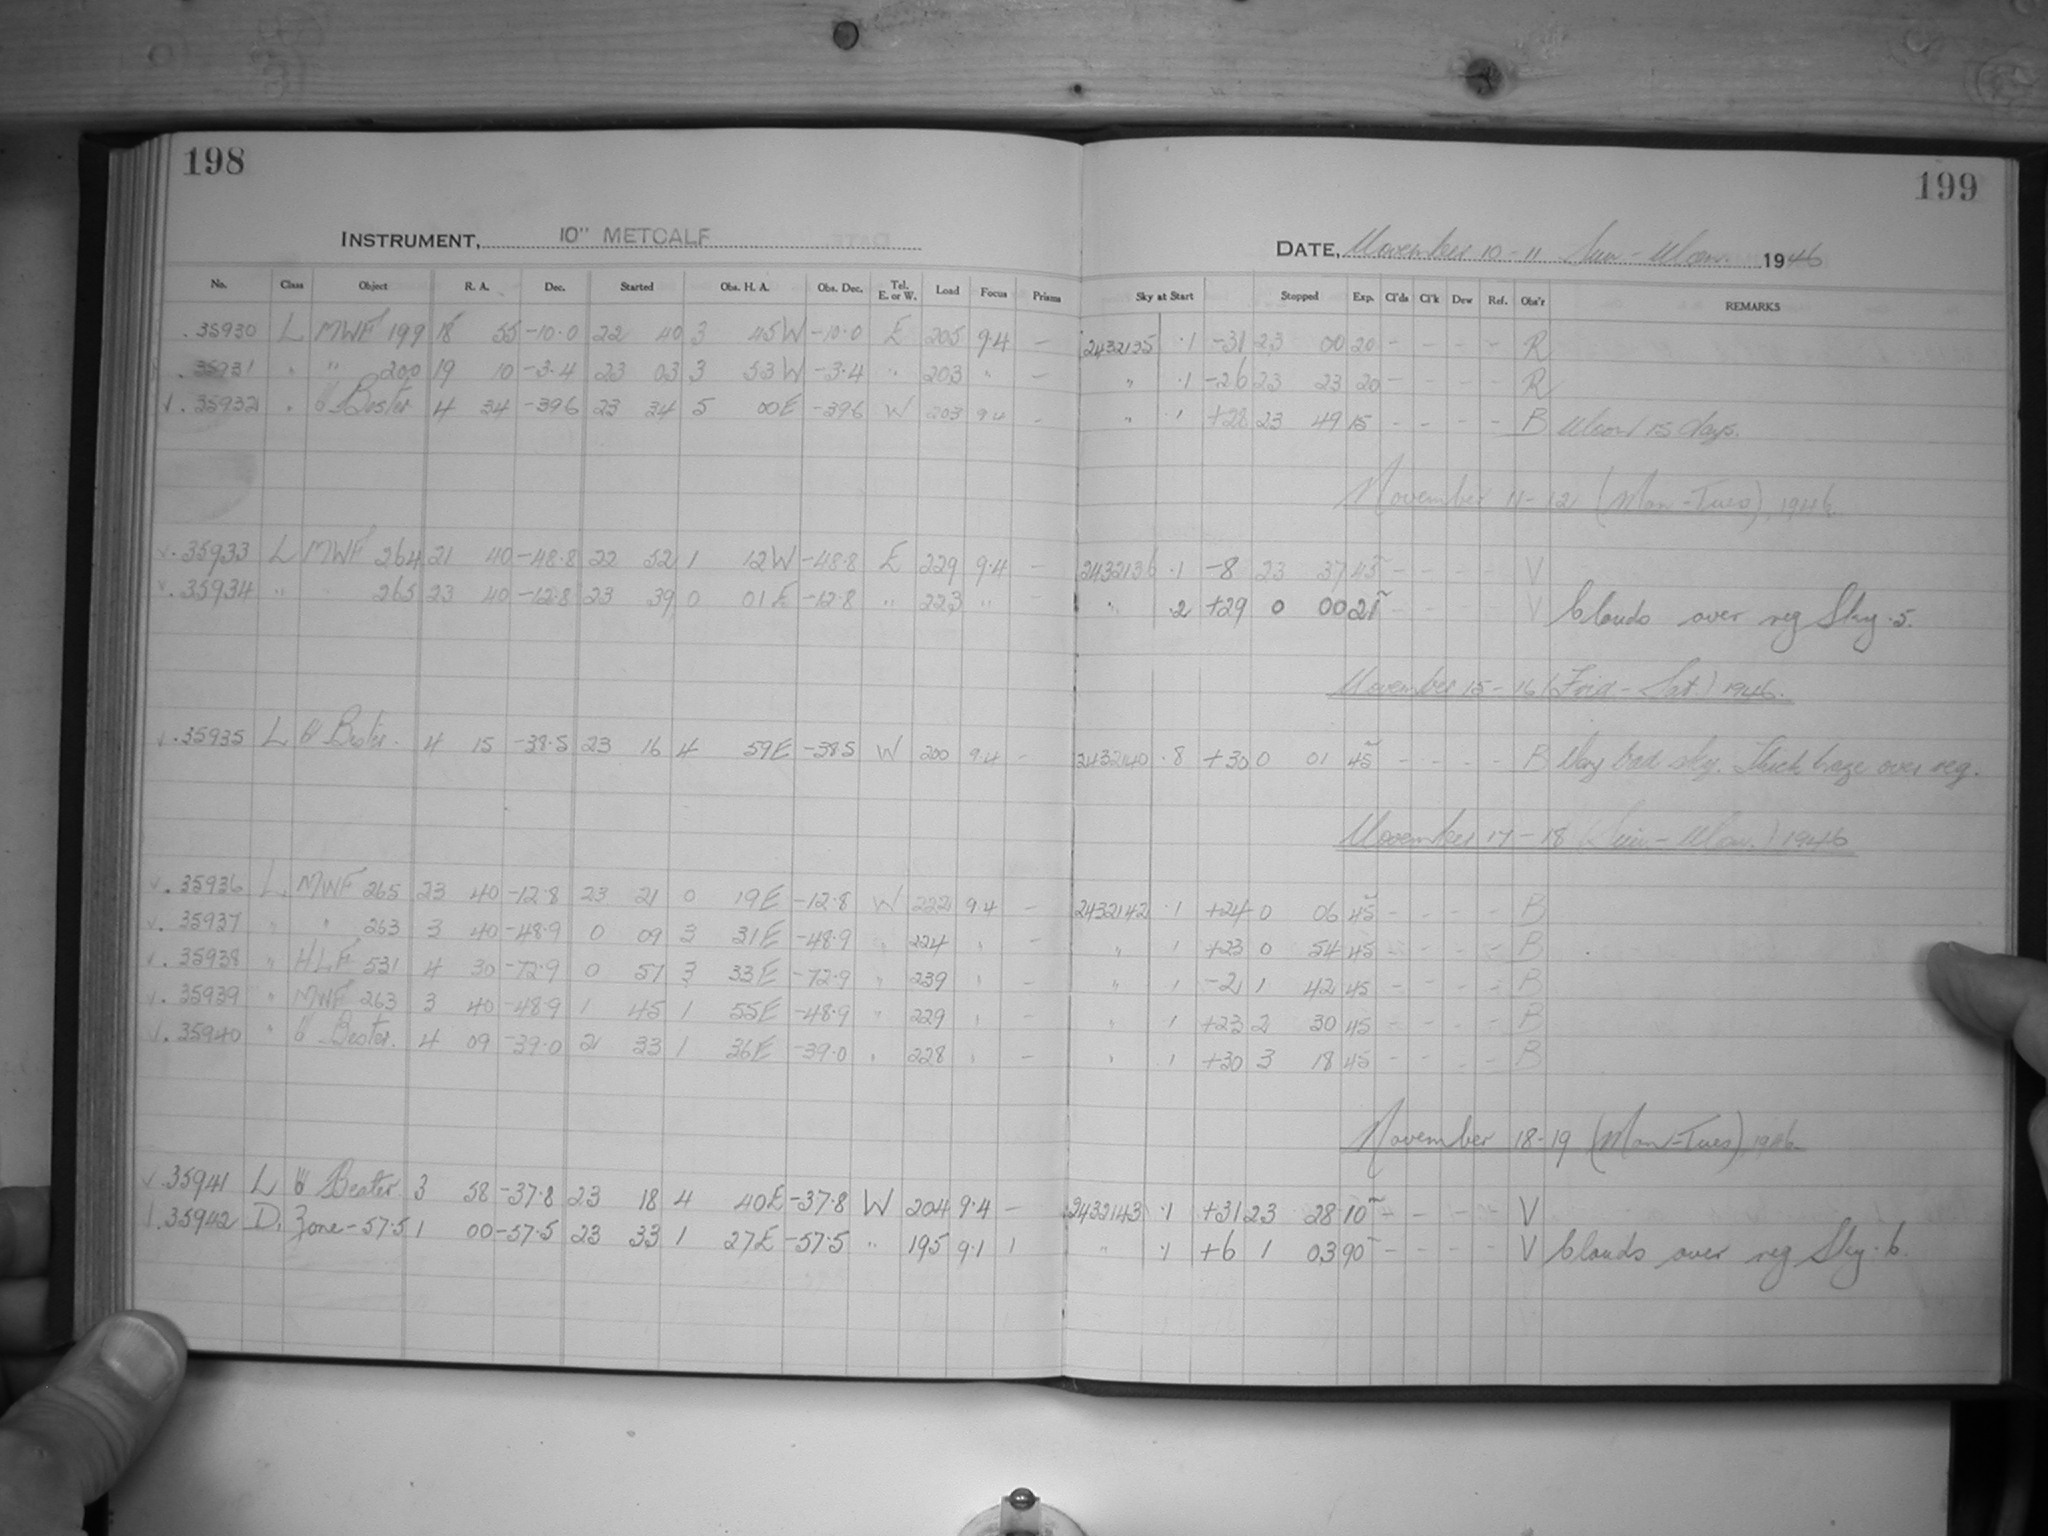 198
199
INSTRUMENT, 10" METCALF
DATE, November 10-11 Sun-Mon. 1946
No. Class Object R. A. Dec. Started Obs. H. A. Obs. Dec. Tel. E. or W. Load Focus Prisms Sky at Start Stopped Exp. Cl'ds Cl'k Dew Ref. Obs'r REMARKS
.35930 L MWF 199 18 55 -10.0 22 40 3 45W -10.0 E 205 9.4 – 2432135 .1 -31 23 00 20 – – – – R
.35931 " " 200 19 10 -3.4 23 03 3 53W -3.4 " 203 " – " .1 -26 23 23 20 – – – – R
√.35932 " Bester 4 34 -39.6 23 34 5 00E -39.6 W 203 9.4 – " .1 +28 23 49 15 – – – – B Moon 15 days.
November 11-12 (Mon-Tues), 1946.
√.35933 L MWF 264 21 40 -48.8 22 52 1 12W -48.8 E 229 9.4 – 2432136 .1 -8 23 37 45 – – – – V
√.35934 " " 265 23 40 -12.8 23 39 0 01E -12.8 " 223 " – " .2 +29 0 00 21 – – – – V Clouds over reg Sky .5.
November 15-16 (Frid-Sat.) 1946.
√.35935 L Bester. 4 15 -38.5 23 16 4 59E -38.5 W 200 9.4 – 2432140 .8 +30 0 01 45 – – – – B Very bad sky. Thick haze over reg.
November 17-18 (Sun-Mon.) 1946
√.35936 L. MWF 265 23 40 -12.8 23 21 0 19E -12.8 W 222 9.4 – 2432142 .1 +24 0 06 45 – – – – B
√.35937 " " 263 3 40 -48.9 0 09 3 31E -48.9 " 224 " – " .1 +23 0 54 45 – – – – B
√.35938 " HLF 531 4 30 -72.9 0 57 3 33E -72.9 " 239 " – " .1 -2 1 42 45 – – – – B
√.35939 " MWF 263 3 40 -48.9 1 45 1 55E -48.9 " 229 " – " .1 +23 2 30 45 – – – – B
√.35940 " Bester. 4 09 -39.0 2 33 1 36E -39.0 " 228 " – " .1 +30 3 18 45 – – – – B
November 18-19 (Mon-Tues), 1946.
√.35941 L Bester. 3 58 -37.8 23 18 4 40E -37.8 W 204 9.4 – 2432143 .1 +31 23 28 10 – – – – V
√.35942 D. Zone -57.5 1 00 -57.5 23 33 1 27E -57.5 " 195 9.1 1 " .1 +6 1 03 90 – – – – V Clouds over reg Sky .6.